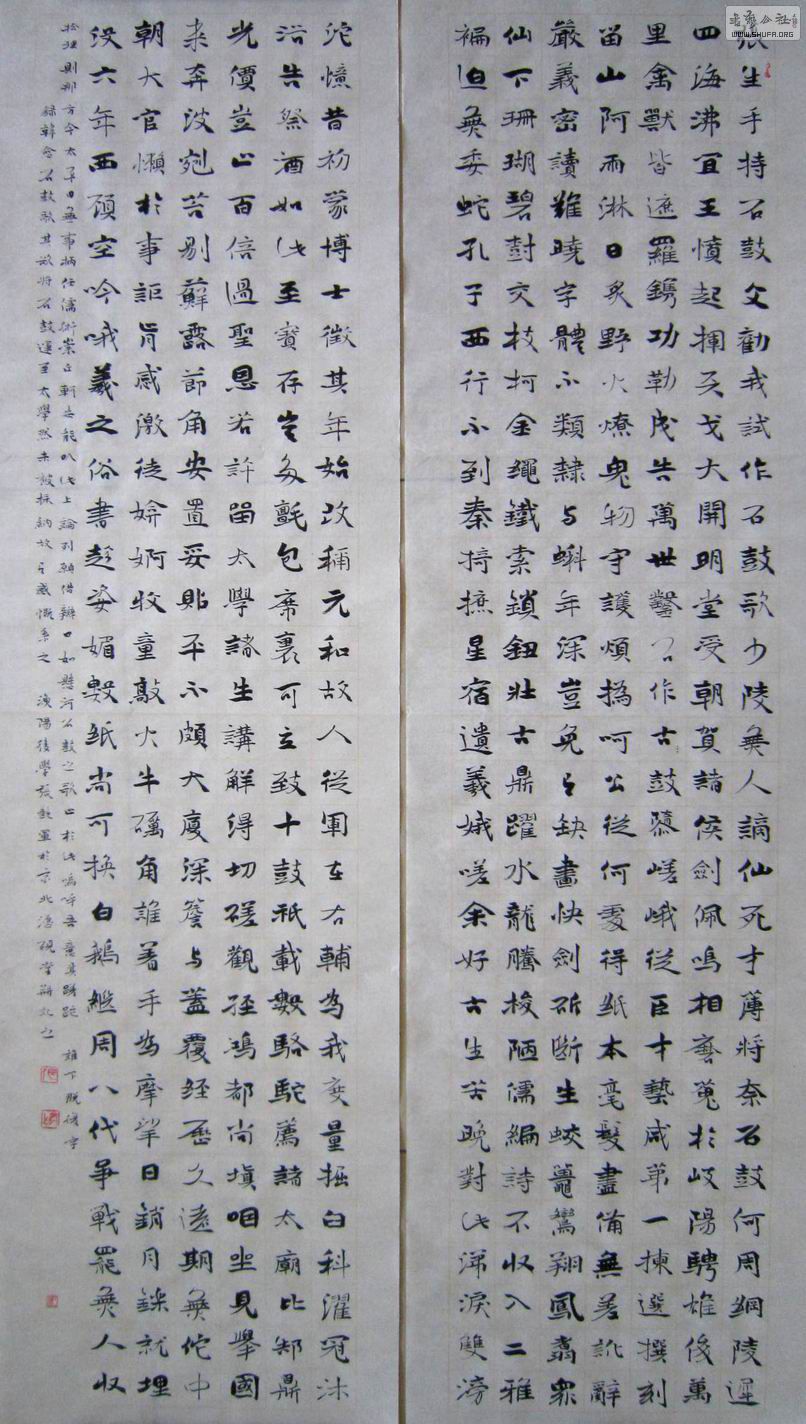 張生手持石鼓文勸我試作石鼓歌少陵無人謫仙死才薄將奈石鼓何周綱陵遲
四海沸宣王憤起揮天戈大開明堂受朝賀諸侯劍佩鳴相磨蒐於岐陽騁雄俊萬
里禽獸皆遮羅鐫功勒成告萬世鑿石作古鼓隳嵯峨從臣才藝咸第一揀選撰刻
留山阿雨淋日炙野火燎鬼物守護煩撝呵公從何處得紙本毫髮盡備無差訛辭
嚴義密讀難曉字體不類隸與蝌年深豈免有缺畫快劍斫斷生蛟鼉鸞翔鳳翥眾
仙下珊瑚碧樹交枝柯金繩鐵索鎖鈕壯古鼎躍水龍騰梭陋儒編詩不收入二雅
褊迫無委蛇孔子西行不到秦掎摭星宿遺羲娥嗟余好古生苦晚對此涕淚雙滂
沱憶昔初蒙博士徵其年始改稱元和故人從軍在右輔為我度量掘臼科濯冠沐
浴告祭酒如此至寶存豈多氈包席裹可立致十鼓祇載數駱駝薦諸太廟比郜鼎
光價豈止百倍過聖恩若許留太學諸生講解得切磋觀經鴻都尚填咽坐見舉國
來奔波剜苔剔蘚露節角安置妥貼平不頗大廈深簷與蓋覆經歷久遠期無佗中
朝大官懶於事詎肯感激徒媕婀牧童敲火牛礪角誰著手為摩挲日銷月鑠就埋
沒六年西顧空吟哦羲之俗書趁姿媚數紙尚可換白鵝繼周八代爭戰罷無人收
拾理則那方今太平日無事柄任儒術崇丘軻安能以此上論列願借辯口如懸河石鼓之歌止於此嗚呼吾意其蹉跎 誰下脫復字
錄韓愈石鼓歌其欲將石鼓運至太學然未被採納故有感慨系之 漁陽後學張軍於京北硯堂
書法公社
WWW.SHUFA.ORG